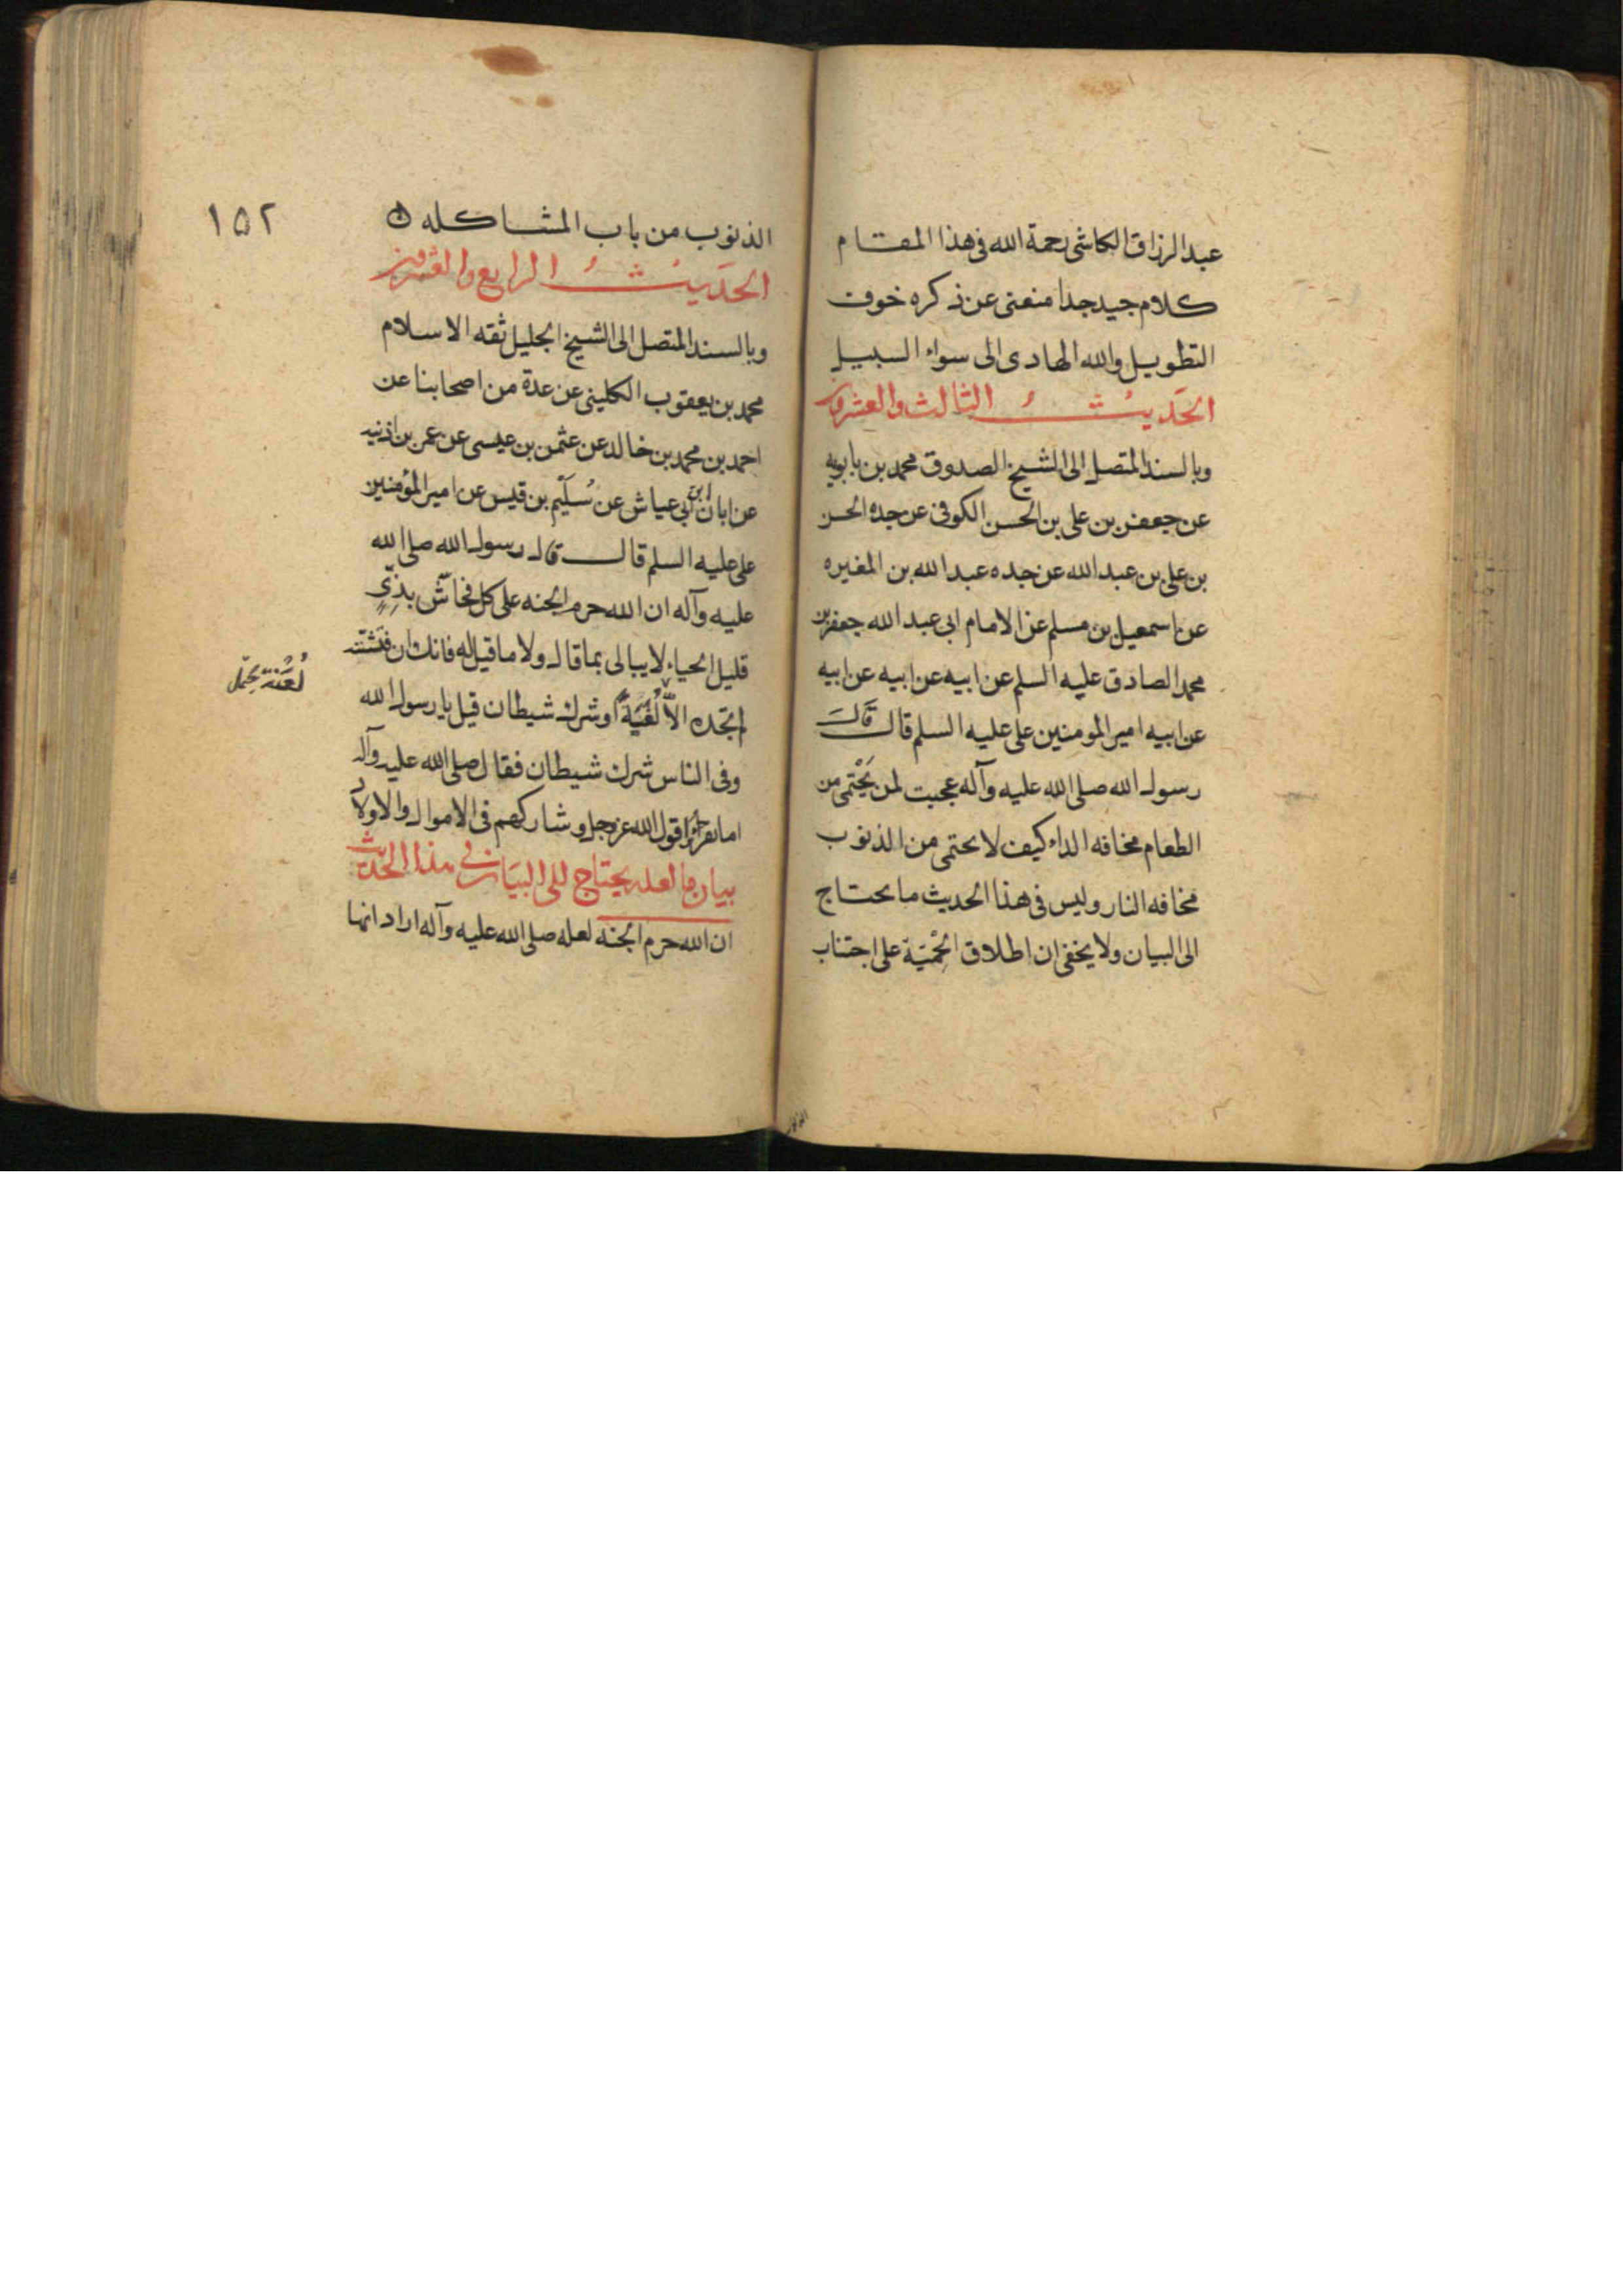 عبد الرزاق الكاشى رحمة الله فى هذا المقام
كلام جيد جدا منعنى عن ذكره خوف
التطويل والله الهادى الى سواء السبيل
الحَديثُ الثالث والعشرون
وبالسند المتصل الى الشيخ الصدوق محمد بن بابويه
عن جعفر بن على بن الحسن الكوفى عن جده الحسن
بن على بن عبد الله عن جده عبد الله بن المغيره
عن اسمعيل بن مسلم عن الامام ابى عبد الله جعفر بن
محمد الصادق عليه السلم عن ابيه عن ابيه عن ابيه
عن ابيه امير المومنين على عليه السلم قال قَالَ
رسول الله صلى الله عليه وآله عجبت لمن يَحْتمى من
الطعام مخافه الداء كيف لا يحتمى من الذنوب
مخافه النار وليس فى هذا الحديث ما يحتاج
الى البيان ولا يخفى ان اطلاق الحِمْيَة على اجتناب
الذنوب
١٥٢
الذنوب من باب المشاكله
الحَديثُ الرابع والعشرون
وبالسند المتصل الى الشيخ الجليل ثقه الاسلام
محمد بن يعقوب الكلينى عن عدة من اصحابنا عن
احمد بن محمد بن خالد عن عثمن بن عيسى عن عمر بن اذنيه
عن ابان ابن ابى عياش عن سُلَيْم بن قيس عن امير المؤمنين
على عليه السلم قال قال رسول الله صلى الله
عليه وآله ان الله حرم الجنه على كل فحّاش بذِىٍّ
قليل الحياء لا يبالى بما قال ولا ما قيل له فانك ان فتشته
لم تجده الّا لُغَيّةً او شرك شيطان قيل يا رسول الله
لُعْنَة يحتمل
وفى الناس شرك شيطان فقال صلى الله عليه وآله
اما تقرأ قول الله عز وجل وشاركهم فى الاموال والاولاد
بيان ما لعله يحتاج الى البيَان فى هذا الحديث
ان الله حرم الجنه لعله صلى الله عليه وآله اراد انها